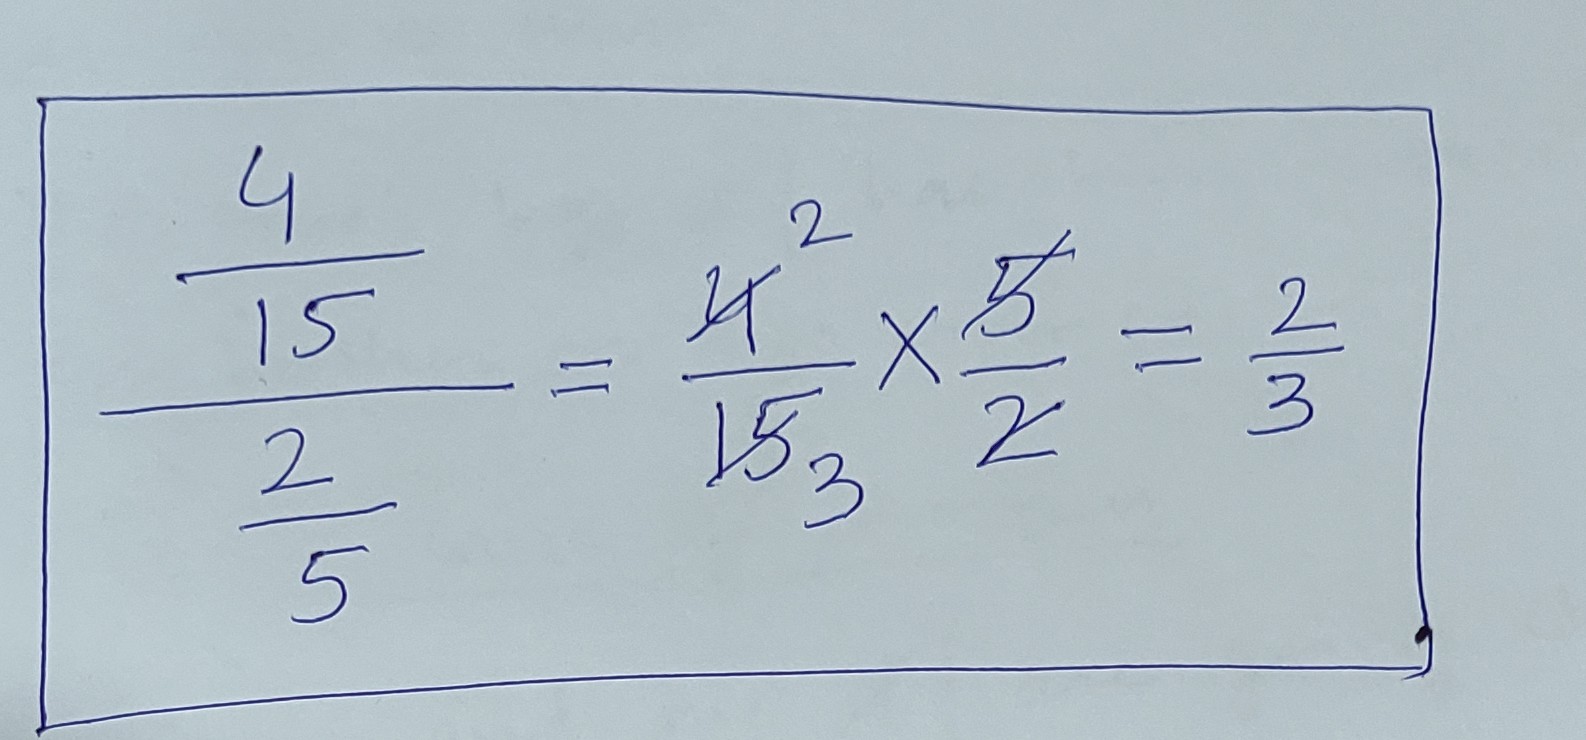 4/15 / 2/5 = 4̸ 2/1̸5̸ 3 × 5̸/2̸ = 2/3